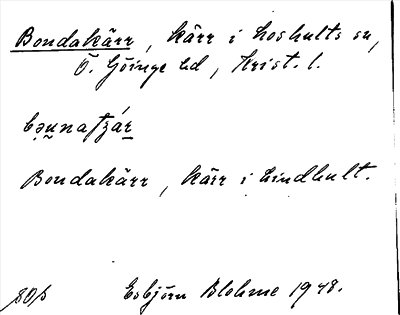 Bondakärr, kärr i Loshults sn,
Ö. Göinge hd, Krist. l.
Bondakärr, kärr i Lindhult.
Esbjörn Blohme 1948.